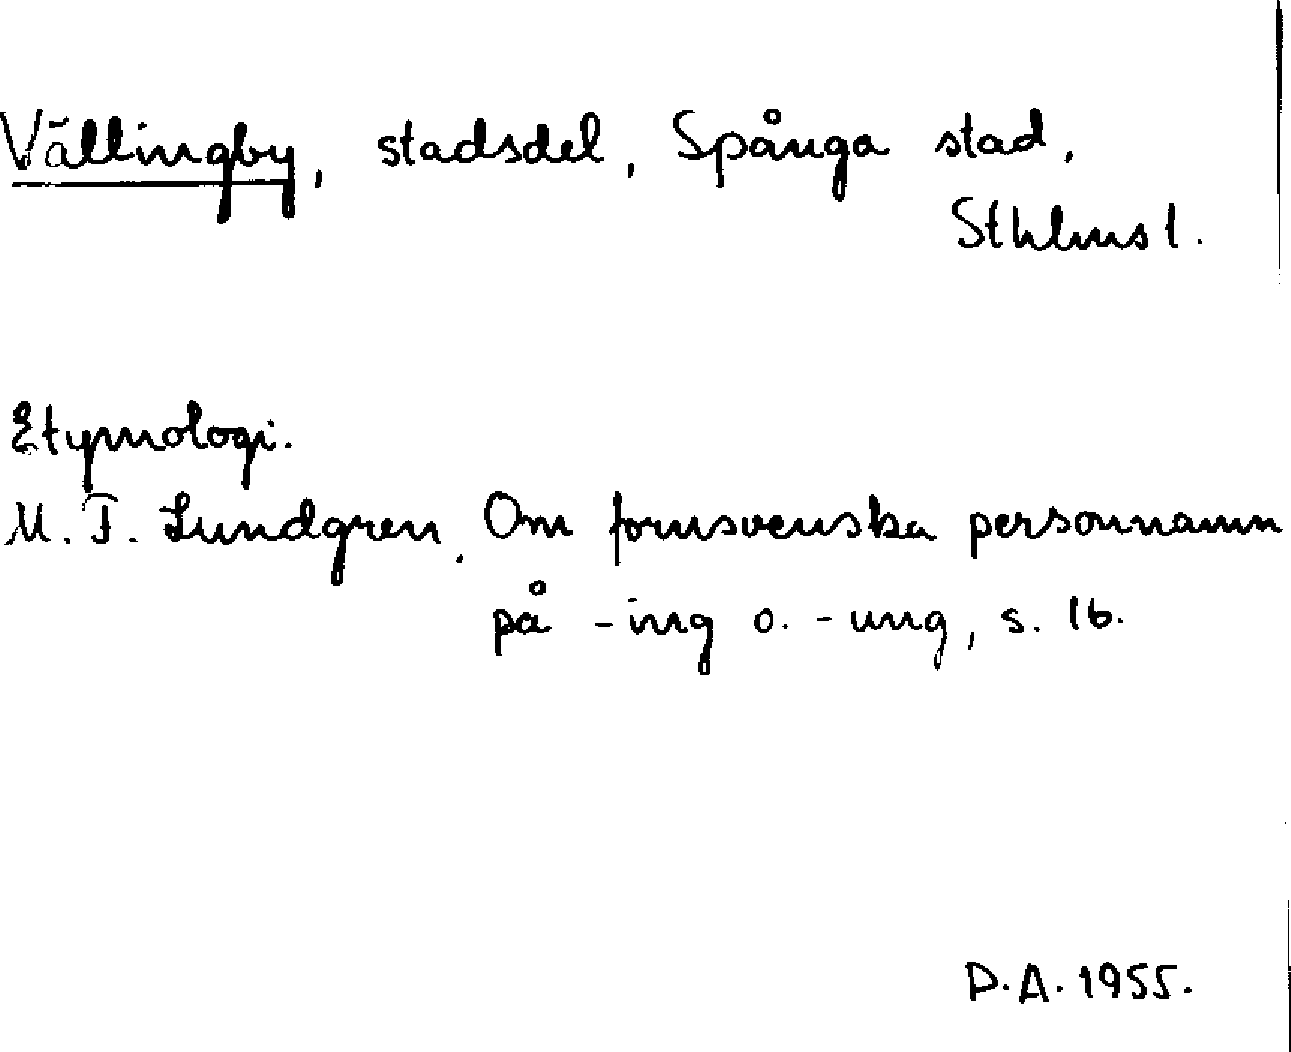 Vällingby, stadsdel, Spånga stad,
Sthlms l.
Etymologi.
M. F. Lundgren, Om fornsvenska personnamn
på -ing o. -ung, s. 16.
D.A. 1955.